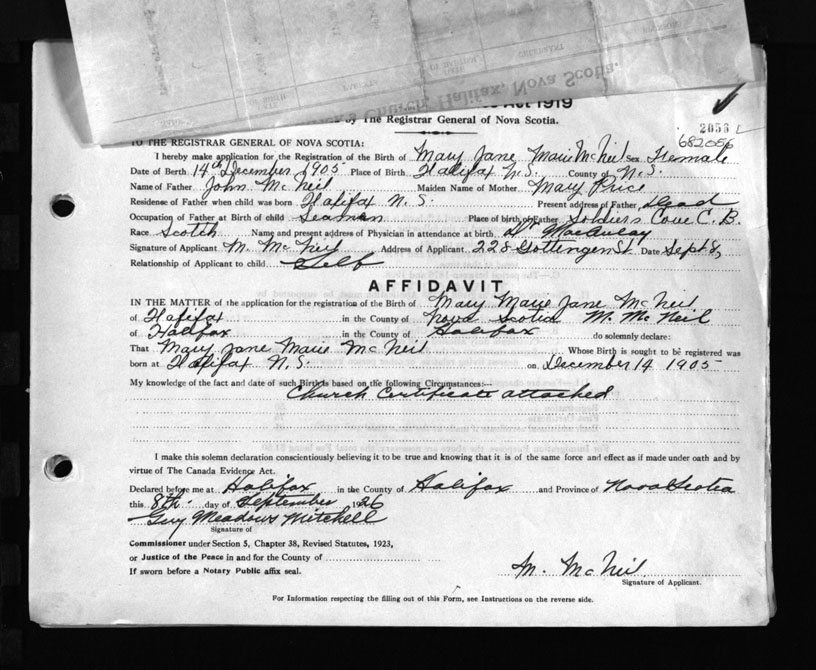 Church, Halifax, Nova Scotia.
Act 1919
by The Registrar General of Nova Scotia.
2056
682056
TO THE REGISTRAR GENERAL OF NOVA SCOTIA:
I hereby make application for the Registration of the Birth of Mary Jane Marie McNeil Sex Female
Date of Birth 14th December 1905 Place of Birth Halifax N.S. County of N.S.
Name of Father John McNeil Maiden Name of Mother Mary Price
Residense of Father when child was born Halifax N.S. Present address of Father Dead
Occupation of Father at Birth of child Seaman Place of birth of Father Soldiers Cove C.B.
Race Scotch Name and present address of Physician in attendance at birth Dr MacAulay
Signature of Applicant M. McNeil Address of Applicant 228 Gottingen St. Date Sept 8,
Relationship of Applicant to child Self
AFFIDAVIT
IN THE MATTER of the application for the registration of the Birth of Mary Marie Jane McNeil
of Halifax in the County of Nova Scotia M. McNeil
of Halifax in the County of Halifax do solemnly declare:
That Mary Jane Marie McNeil Whose Birth is sought to be registered was
born at Halifax N.S. on December 14 1905
My knowledge of the fact and date of such Birth is based on the following Circumstances:—
Church Certificate attached
I make this solemn declaration conscientiously believing it to be true and knowing that it is of the same force and effect as if made under oath and by
virtue of The Canada Evidence Act.
Declared before me at Halifax in the County of Halifax and Province of Nova Scotia
this 8th day of September 1926
Guy Meadows Mitchell
Signature of
Commissioner under Section 5, Chapter 38, Revised Statutes, 1923,
or Justice of the Peace in and for the County of
If sworn before a Notary Public affix seal.
M. McNeil
Signature of Applicant.
For Information respecting the filling out of this Form, see Instructions on the reverse side.